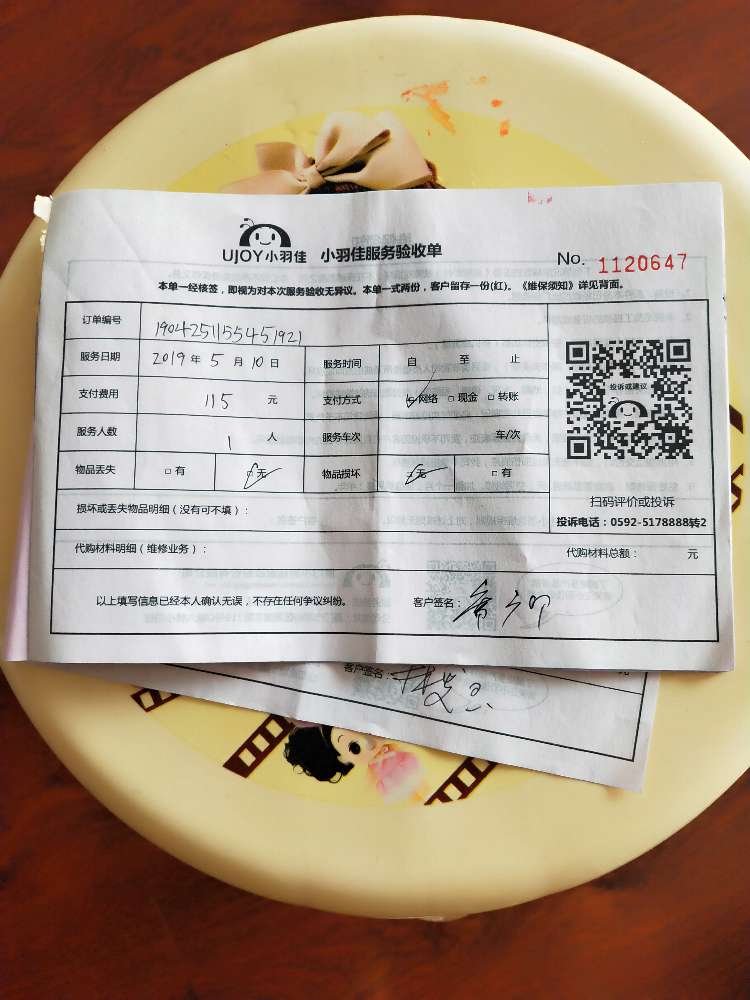 UJOY小羽佳 小羽佳服务验收单 No. 1120647
本单一经核签，即视为对本次服务验收无异议。本单一式两份，客户留存一份(红)。《维保须知》详见背面。
订单编号 1904251155451921
服务日期 2019 年 5 月 10 日 服务时间 自 至 止
支付费用 115 元 支付方式 ☑网络 □现金 □转账
投诉或建议
服务人数 1 人 服务车次 车/次
物品丢失 □有 ☑无 物品损坏 ☑无 □有
扫码评价或投诉
损坏或丢失物品明细（没有可不填）：
投诉电话：0592-5178888转2
代购材料明细（维修业务）： 代购材料总额： 元
以上填写信息已经本人确认无误，不存在任何争议纠纷。 客户签名：
客户签名：